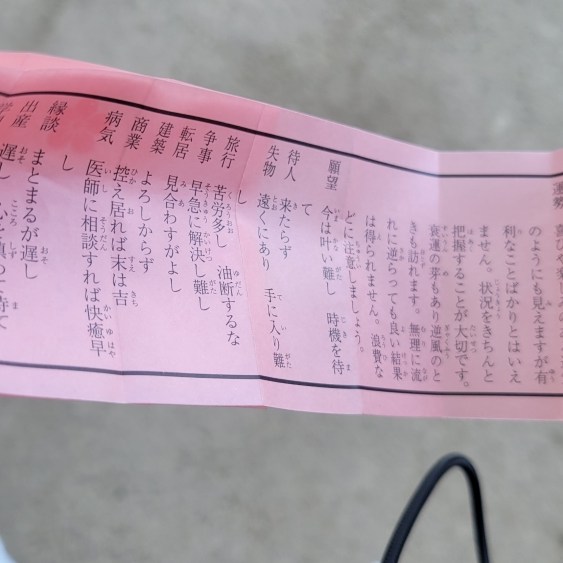 運勢
のようにも見えますが有
利なことばかりとはいえ
ません。状況をきちんと
把握することが大切です。
衰運の芽もあり逆風のと
きも訪れます。無理に流
れに逆らっても良い結果
は得られません。浪費な
どに注意しましょう。
願望 今は叶い難し 時機を待
て
待人 来たらず
失物 遠くにあり 手に入り難
し
旅行 苦労多し 油断するな
争事 早急に解決し難し
転居 見合わすがよし
建築 よろしからず
商業 控え居れば末は吉
病気 医師に相談すれば快癒早
し
縁談 まとまるが遅し
出産 遅し 心を真って待て